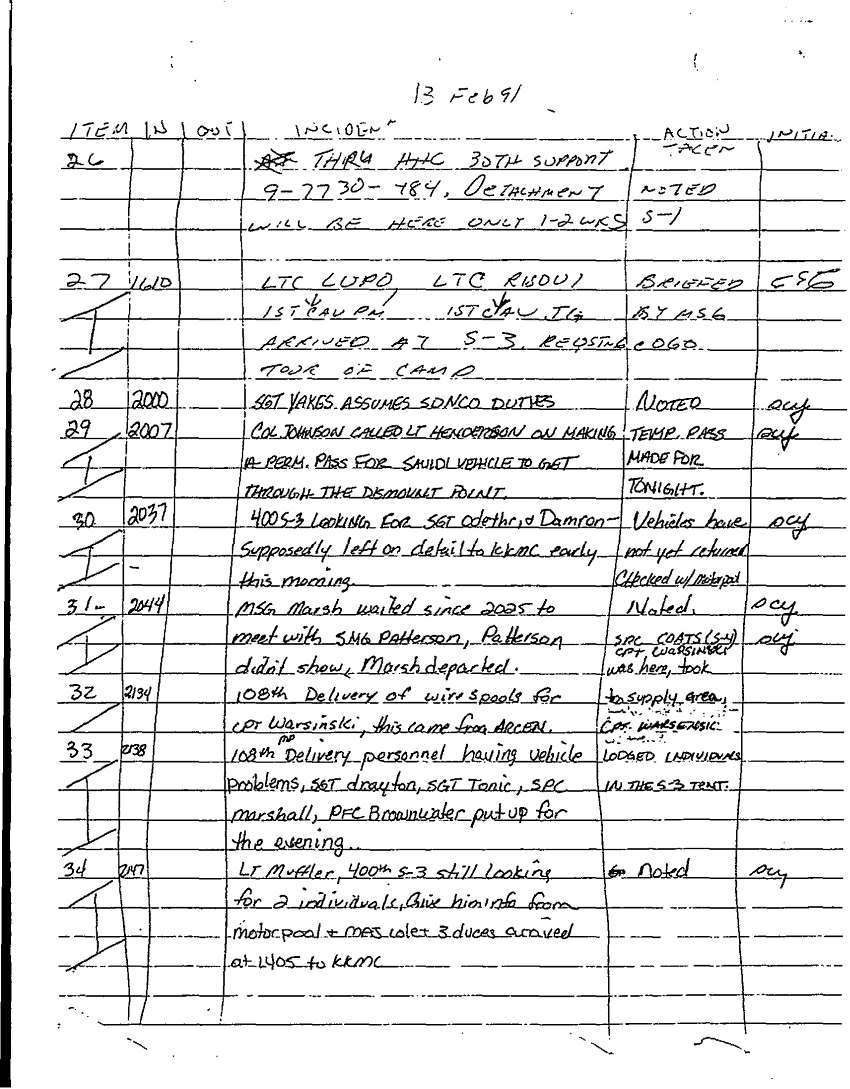 13 Feb 91
ITEM IN OUT INCIDENT ACTION TAKEN INITIA
26 THRU HHC 30TH SUPPORT
9-7730-484, DETACHMENT NOTED
WILL BE HERE ONLY 1-2 WKS S-1
27 1610 LTC LUPO, LTC BRIEFED
1ST CAV PM 1ST CAV BY MSG
ARRIVED AT S-3,
TOUR OF CAMP
28 2000 SGT YAKES ASSUMES SDNCO DUTIES NOTED
29 2007 COL JOHNSON CALLED LT HENDERSON ON MAKING TEMP. PASS
A PERM. PASS FOR SAUIDI VEHICLE TO GET MADE FOR
THROUGH THE DISMOUNT POINT. TONIGHT.
30 2037 400 S-3 LOOKING FOR SGT & Damron- Vehicles have
Supposedly left on detail to KKMC early not yet returned
this morning. Checked w/
31- 2044 MSG Marsh waited since 2025 to Noted.
meet with SMG PATTERSON, Patterson SPC COATS (S-4)
CPT WARSINSKI
didn't show, Marsh departed. was here, took
32 2134 108th Delivery of wire spools for to supply area,
CPT Warsinski, this came from ARCEN. CPT. WARSENSIC
33 2138 108th MP Delivery personnel having vehicle LODGED INDIVIDUALS
problems, SGT drayton, SGT Tonic, SPC IN THE S-3 TENT.
marshall, PFC Brownwater put up for
the evening..
34 2147 LT Muffler, 400th S-3 still looking Noted
for 2 individuals, Give him info from
motorpool + 3 duces
at 1405 to KKMC